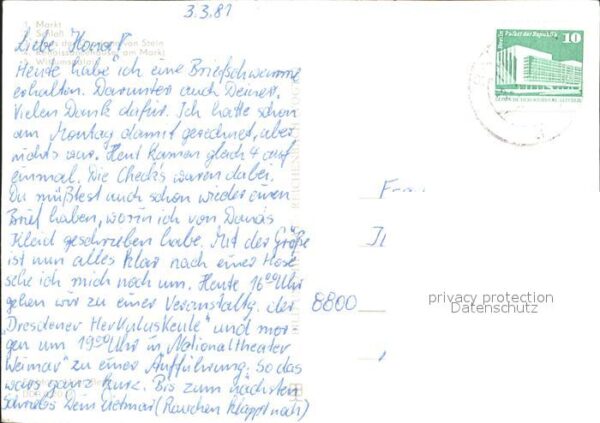 3.3.81
1 Markt
2 Schloß
von Stein
am Markt
Liebe Hona!
Heute habe ich eine Briefschwemme
erhalten. Darunter auch Deiner.
Vielen Dank dafür. Ich hatte schon
am Montag damit gerechnet, aber
nichts war. Heut kamen gleich 4 auf
einmal. Die Checks waren dabei.
Du müßtest auch schon wieder einen
Brief haben, worin ich von Danas
Kleid geschrieben habe. Mit der Größe
ist nun alles klar nach einer Hose
sehe ich mich noch um. Heute 16⁰⁰ Uhr
gehen wir zu einer Veranstaltg. der
"Dresdener Herkuluskeule" und mor
gen um 19⁰⁰ Uhr in Nationaltheater
Weimar zu einer Aufführung. So das
wars ganz kurz. Bis zum nächsten
Schreibs Dein Dietmar (Rauchen klappt noch)
Berlin, Palast der Republik
10
8800
privacy protection
Datenschutz